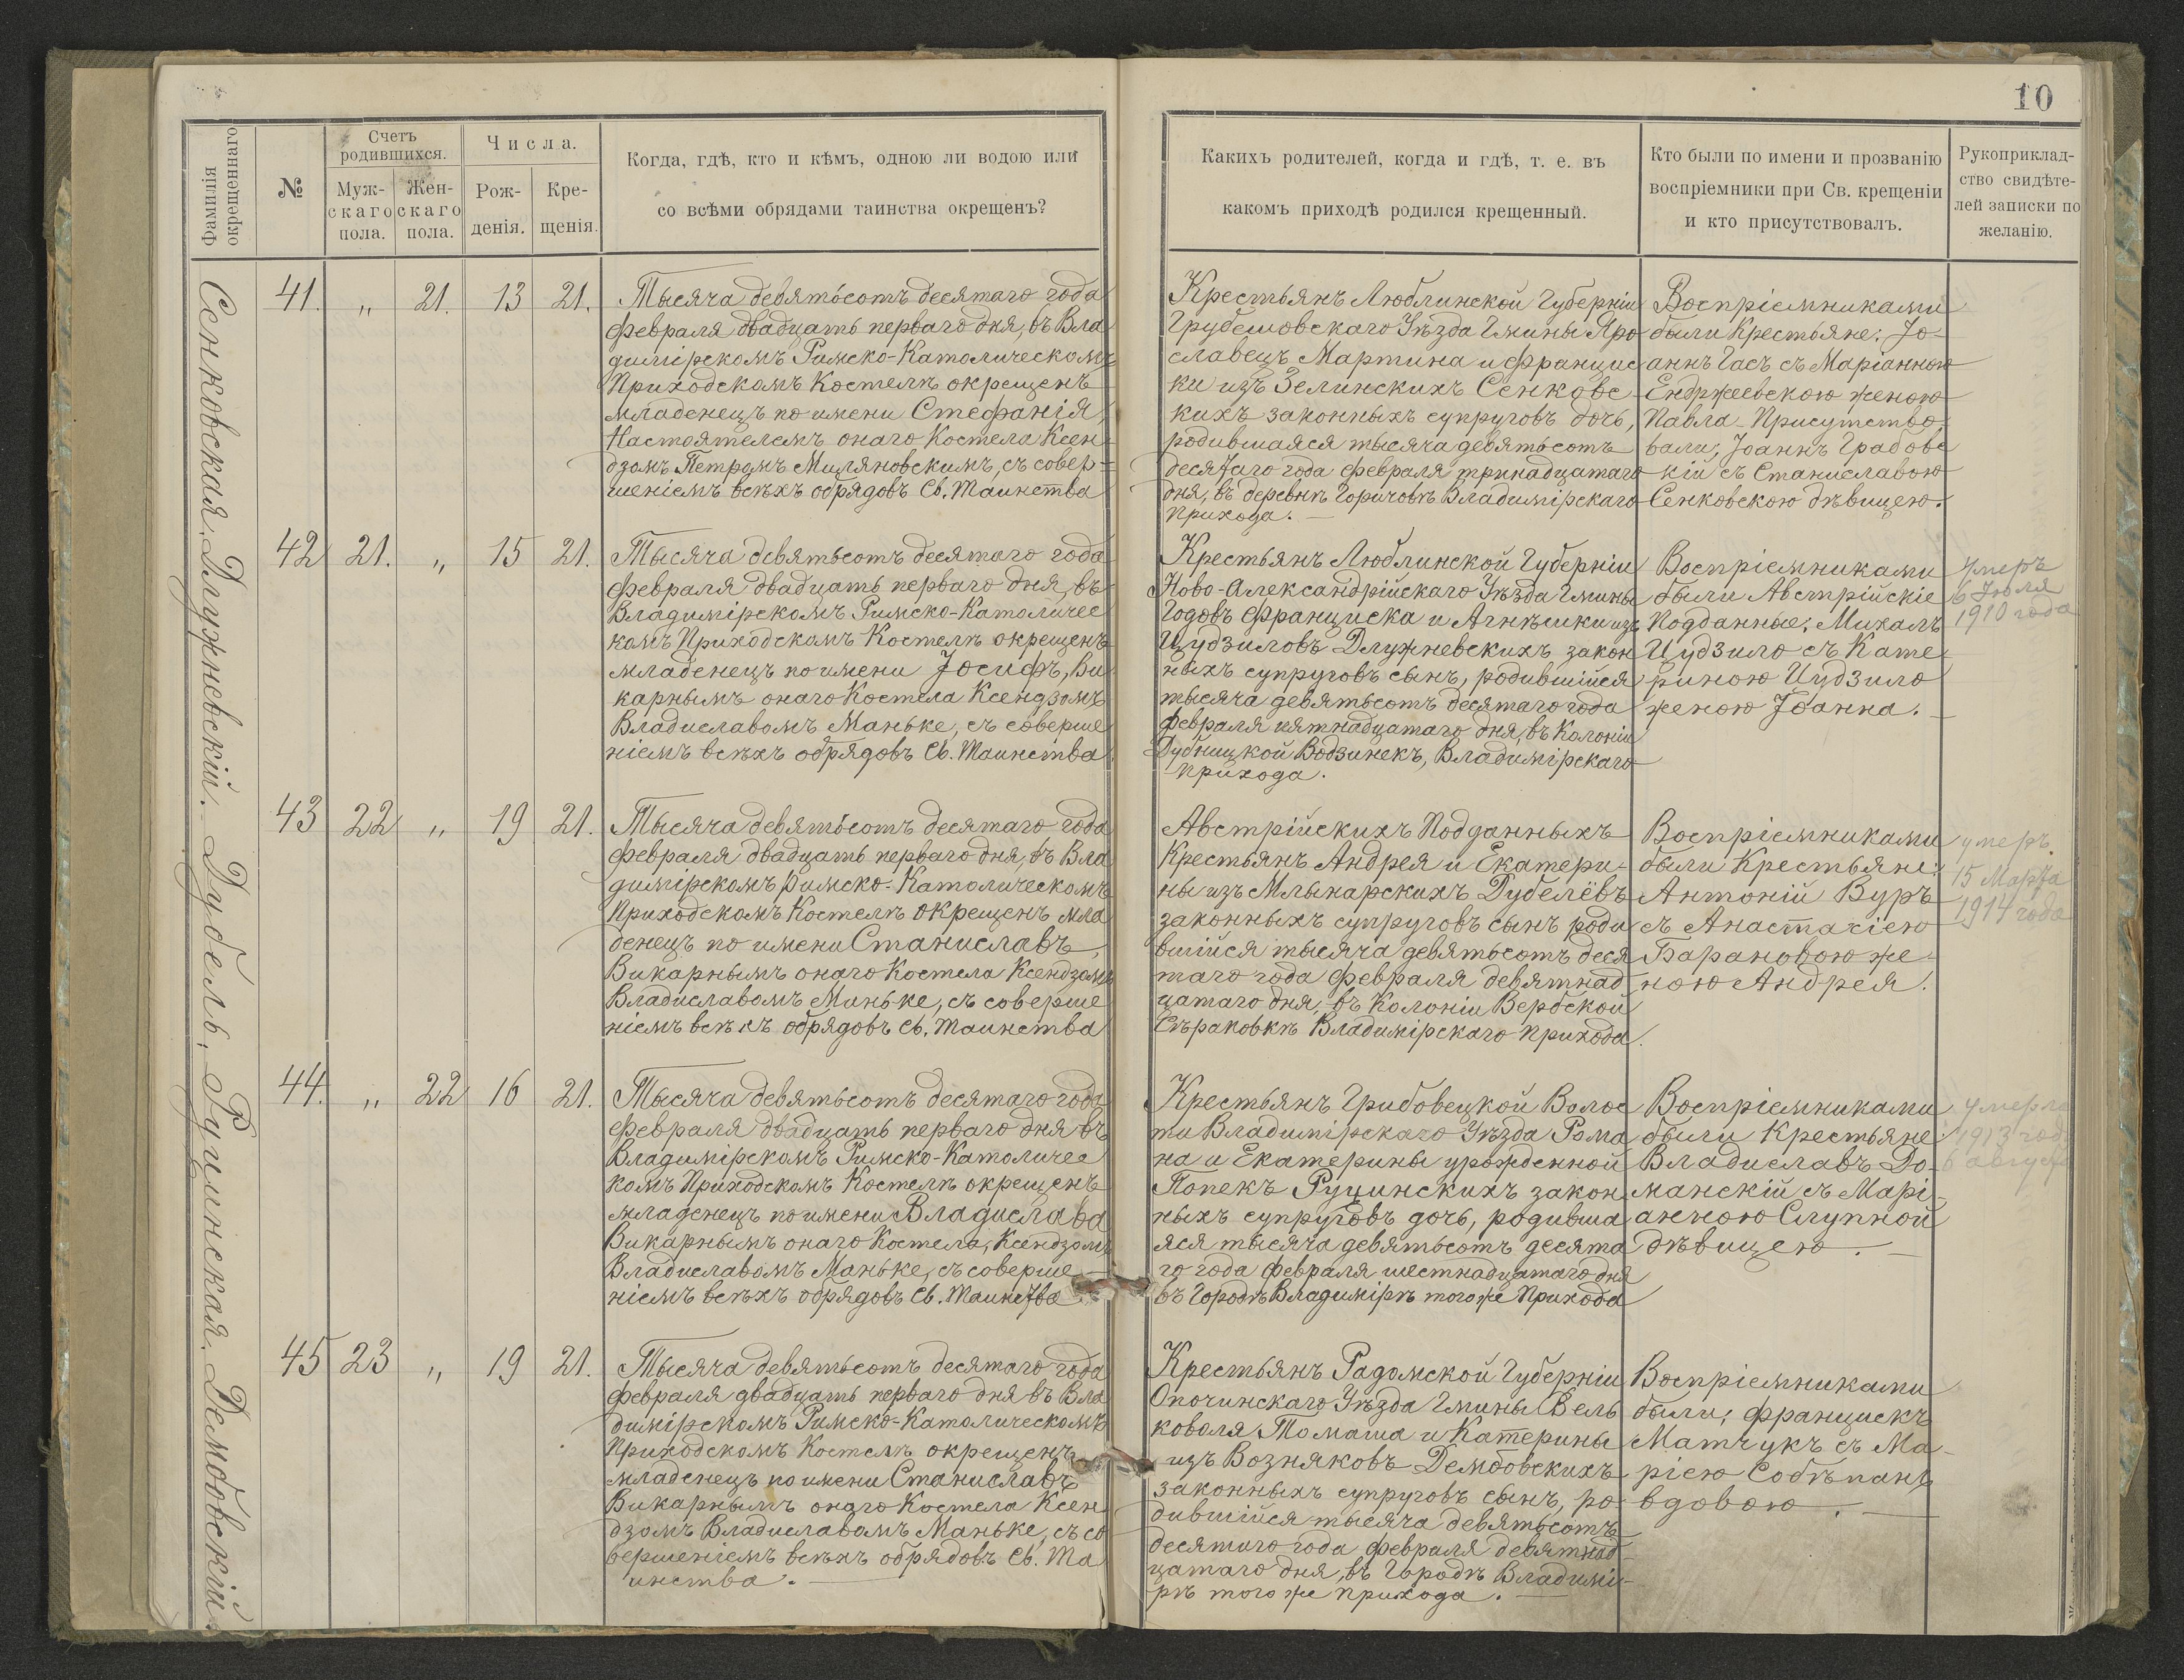 10
Фамилія окрещеннаго
№
Счетъ родившихся.
Муж-
скаго
пола.
Жен-
скаго
пола.
Числа.
Рож-
денія.
Кре-
щенія.
Когда, гдѣ, кто и кѣмъ, одною ли водою или
со всѣми обрядами таинства окрещенъ?
Какихъ родителей, когда и гдѣ, т. е. въ
какомъ приходѣ родился крещенный.
Кто были по имени и прозванію
воспріемники при Св. крещеніи
и кто присутствовалъ.
Рукоприклад-
ство свидѣте-
лей записки по
желанію.
Сенковская.
41. " 21. 13 21.
Тысяча девятьсотъ десятаго года
февраля двадцать перваго дня, въ Вла
димірскомъ Римско-Католическомъ
Приходскомъ Костелѣ окрещенъ
младенецъ по имени Стефанія,
Настоятелемъ онаго Костела Ксен-
дзомъ Петромъ Миляновскимъ, съ совер-
шеніемъ всѣхъ обрядовъ Св. Таинства
Крестьянъ Люблинской Губерніи
Грубешовскаго Уѣзда Гмины Яро
славецъ Мартина и Францис
ки изъ Зелинскихъ Сенковс
кихъ законныхъ супруговъ дочь,
родившаяся тысяча девятьсотъ
десятаго года февраля тринадцатаго
дня, въ деревнѣ Горичовѣ Владимірскаго
Прихода.
Воспріемниками
были Крестьяне: Іо-
аннъ Гасъ съ Маріанною
Ендржеевскою женою
Павла. Присутство-
вали; Іоаннъ Грабовс
кій съ Станиславою
Сенковскою дѣвицею.
Длужневскій.
42 21. " 15 21.
Тысяча девятьсотъ десятаго года
февраля двадцать перваго дня, въ
Владимірскомъ Римско-Католичес
комъ Приходскомъ Костелѣ окрещенъ
младенецъ по имени Іосифъ, Ви
карнымъ онаго Костела Ксендзомъ
Владиславомъ Маньке, съ соверше
ніемъ всѣхъ обрядовъ Св. Таинства
Крестьянъ Люблинской Губерніи
Ново-Александрійскаго Уѣзда Гмины
Годовъ Франциска и Агнѣшки изъ
Цудзиловъ Длужневскихъ закон
ныхъ супруговъ сынъ, родившійся
тысяча девятьсотъ десятаго года
февраля пятнадцатаго дня, въ Колоніи
Дубницкой Водзинекъ, Владимірскаго
прихода.
Воспріемниками
были Австрійскіе
Подданные; Михалъ
Цудзило съ Кате
риною Цудзило
женою Іоанна.
Умеръ
6 Іюля
1910 года
Дубель.
43 22 " 19 21.
Тысяча девятьсотъ десятаго года
февраля двадцать перваго дня, въ Вла
димірскомъ Римско-Католическомъ
Приходскомъ Костелѣ окрещенъ мла
денецъ по имени Станиславъ,
Викарнымъ онаго Костела Ксендзомъ
Владиславомъ Маньке, съ соверше
ніемъ всѣхъ обрядовъ Св. Таинства
Австрійскихъ Подданныхъ
Крестьянъ Андрея и Екатери-
ны изъ Млынарскихъ Дубелёвъ
законныхъ супруговъ сынъ роди
вшійся тысяча девятьсотъ деся
таго года февраля девятнад
цатаго дня, въ Колоніи Вербской
Сѣраковкѣ Владимірскаго Прихода.
Воспріемниками
были Крестьяне:
Антоній Вуръ
съ Анастасіею
Барановою же-
ною Андрея.
умеръ
15 Марта
1914 года
Руцинская.
44. " 22 16 21.
Тысяча девятьсотъ десятаго года
февраля двадцать перваго дня въ
Владимірскомъ Римско-Католичес
комъ Приходскомъ Костелѣ окрещенъ
младенецъ по имени Владислава
Викарнымъ онаго Костела, Ксендзомъ
Владиславомъ Маньке, съ соверше-
ніемъ всѣхъ обрядовъ Св. Таинства
Крестьянъ Грибовецкой Волос
ти Владимірскаго Уѣзда Рома
на и Екатерины урожденной
Попекъ Руцинскихъ закон-
ныхъ супруговъ дочь, родивша
яся тысяча девятьсотъ десята
го года февраля шестнадцатаго дня
въ Городѣ Владимірѣ того же Прихода
Воспріемниками
были Крестьяне
Владиславъ До-
манскій съ Марі-
анною Слупной
дѣвицею.
умерла
1913 года
6 августа
Дембовскій
45 23 " 19 21.
Тысяча девятьсотъ десятаго года
февраля двадцать перваго дня въ Вла
димірскомъ Римско-Католическомъ
Приходскомъ Костелѣ окрещенъ
младенецъ по имени Станиславъ
Викарнымъ онаго Костела Ксен
дзомъ Владиславомъ Маньке, съ со
вершеніемъ всѣхъ обрядовъ Св. Та
инства.
Крестьянъ Радомской Губерніи
Опочинскаго Уѣзда Гмины Вель
коволя Томаша и Катерины
изъ Возняковъ Дембовскихъ
законныхъ супруговъ сынъ, ро-
дившійся тысяча девятьсотъ
десятаго года февраля девятнад-
цатаго дня, въ Городѣ Владимі-
рѣ того же прихода.
Воспріемниками
были; Францискъ
Матчукъ съ Ма-
ріею Собѣпанъ
вдовою.